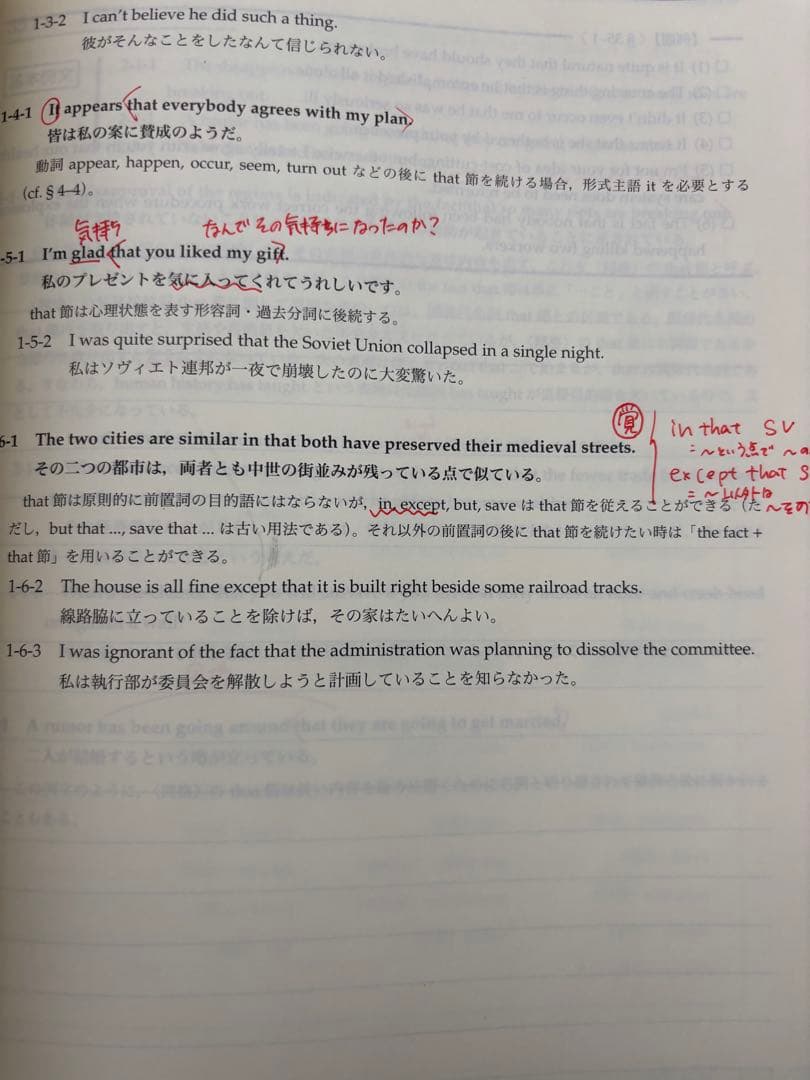 1-3-2 I can't believe he did such a thing.
彼がそんなことをしたなんて信じられない。
1-4-1 It appears that everybody agrees with my plan.
皆は私の案に賛成のようだ。
動詞 appear, happen, occur, seem, turn out などの後に that 節を続ける場合，形式主語 it を必要とする
(cf. § 4–4)。
気持ち なんでその気持ちになったのか？
-5-1 I'm glad that you liked my gift.
私のプレゼントを気に入ってくれてうれしいです。
that 節は心理状態を表す形容詞・過去分詞に後続する。
1-5-2 I was quite surprised that the Soviet Union collapsed in a single night.
私はソヴィエト連邦が一夜で崩壊したのに大変驚いた。
覚 in that SV
＝〜という点で
6-1 The two cities are similar in that both have preserved their medieval streets.
except that S
その二つの都市は，両者とも中世の街並みが残っている点で似ている。
＝〜以外は
that 節は原則的に前置詞の目的語にはならないが, in except, but, save は that 節を従えることができる（た
だし，but that ..., save that ... は古い用法である）。それ以外の前置詞の後に that 節を続けたい時は「the fact +
that 節」を用いることができる。
1-6-2 The house is all fine except that it is built right beside some railroad tracks.
線路脇に立っていることを除けば，その家はたいへんよい。
1-6-3 I was ignorant of the fact that the administration was planning to dissolve the committee.
私は執行部が委員会を解散しようと計画していることを知らなかった。